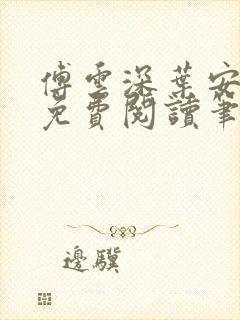 傅雲深葉安
免費閱讀筆
邊驥